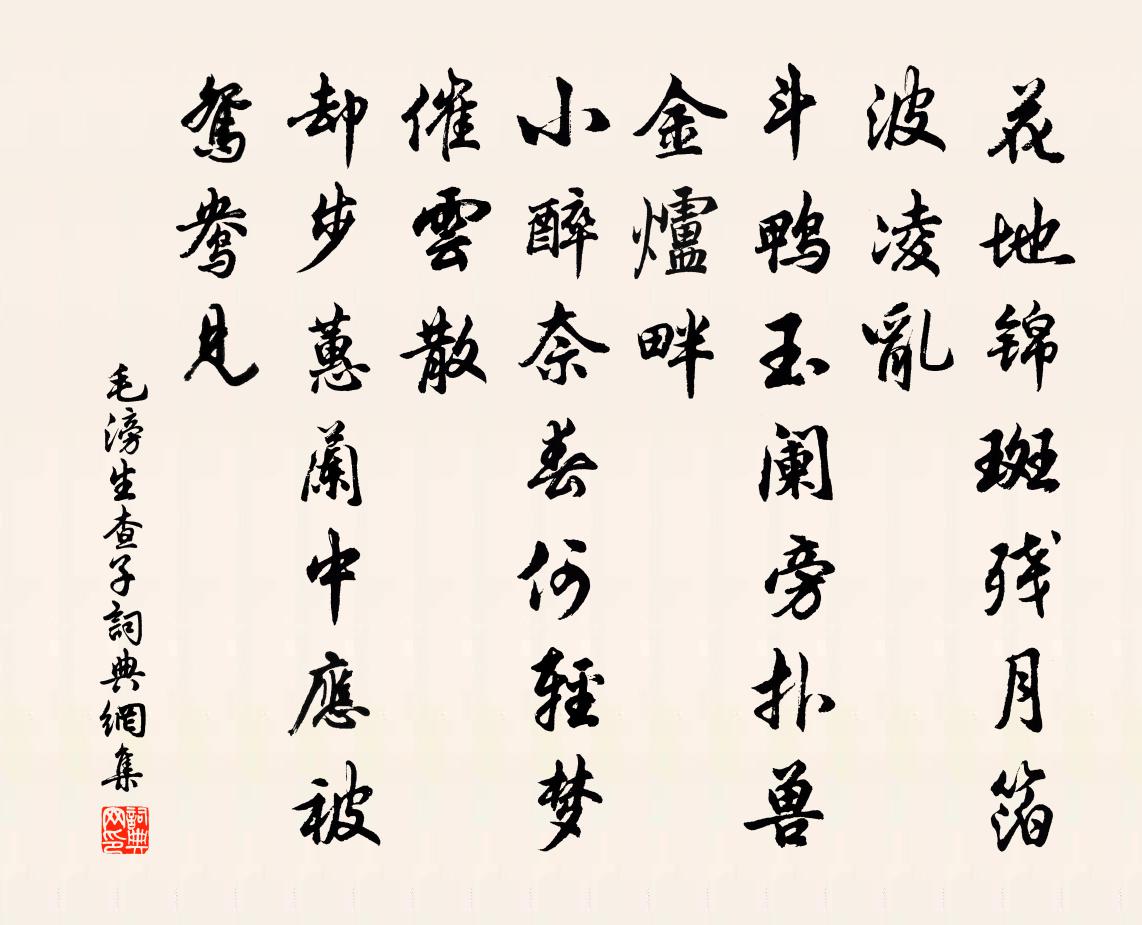 花地锦斑残月箔
波凌亂
斗鸭玉阑旁扑兽
金爐畔
小醉奈春何輕梦
催雲散
却步蕙蘭中應被
鸳鸯見
毛滂生查子詞典網集
詞典網印